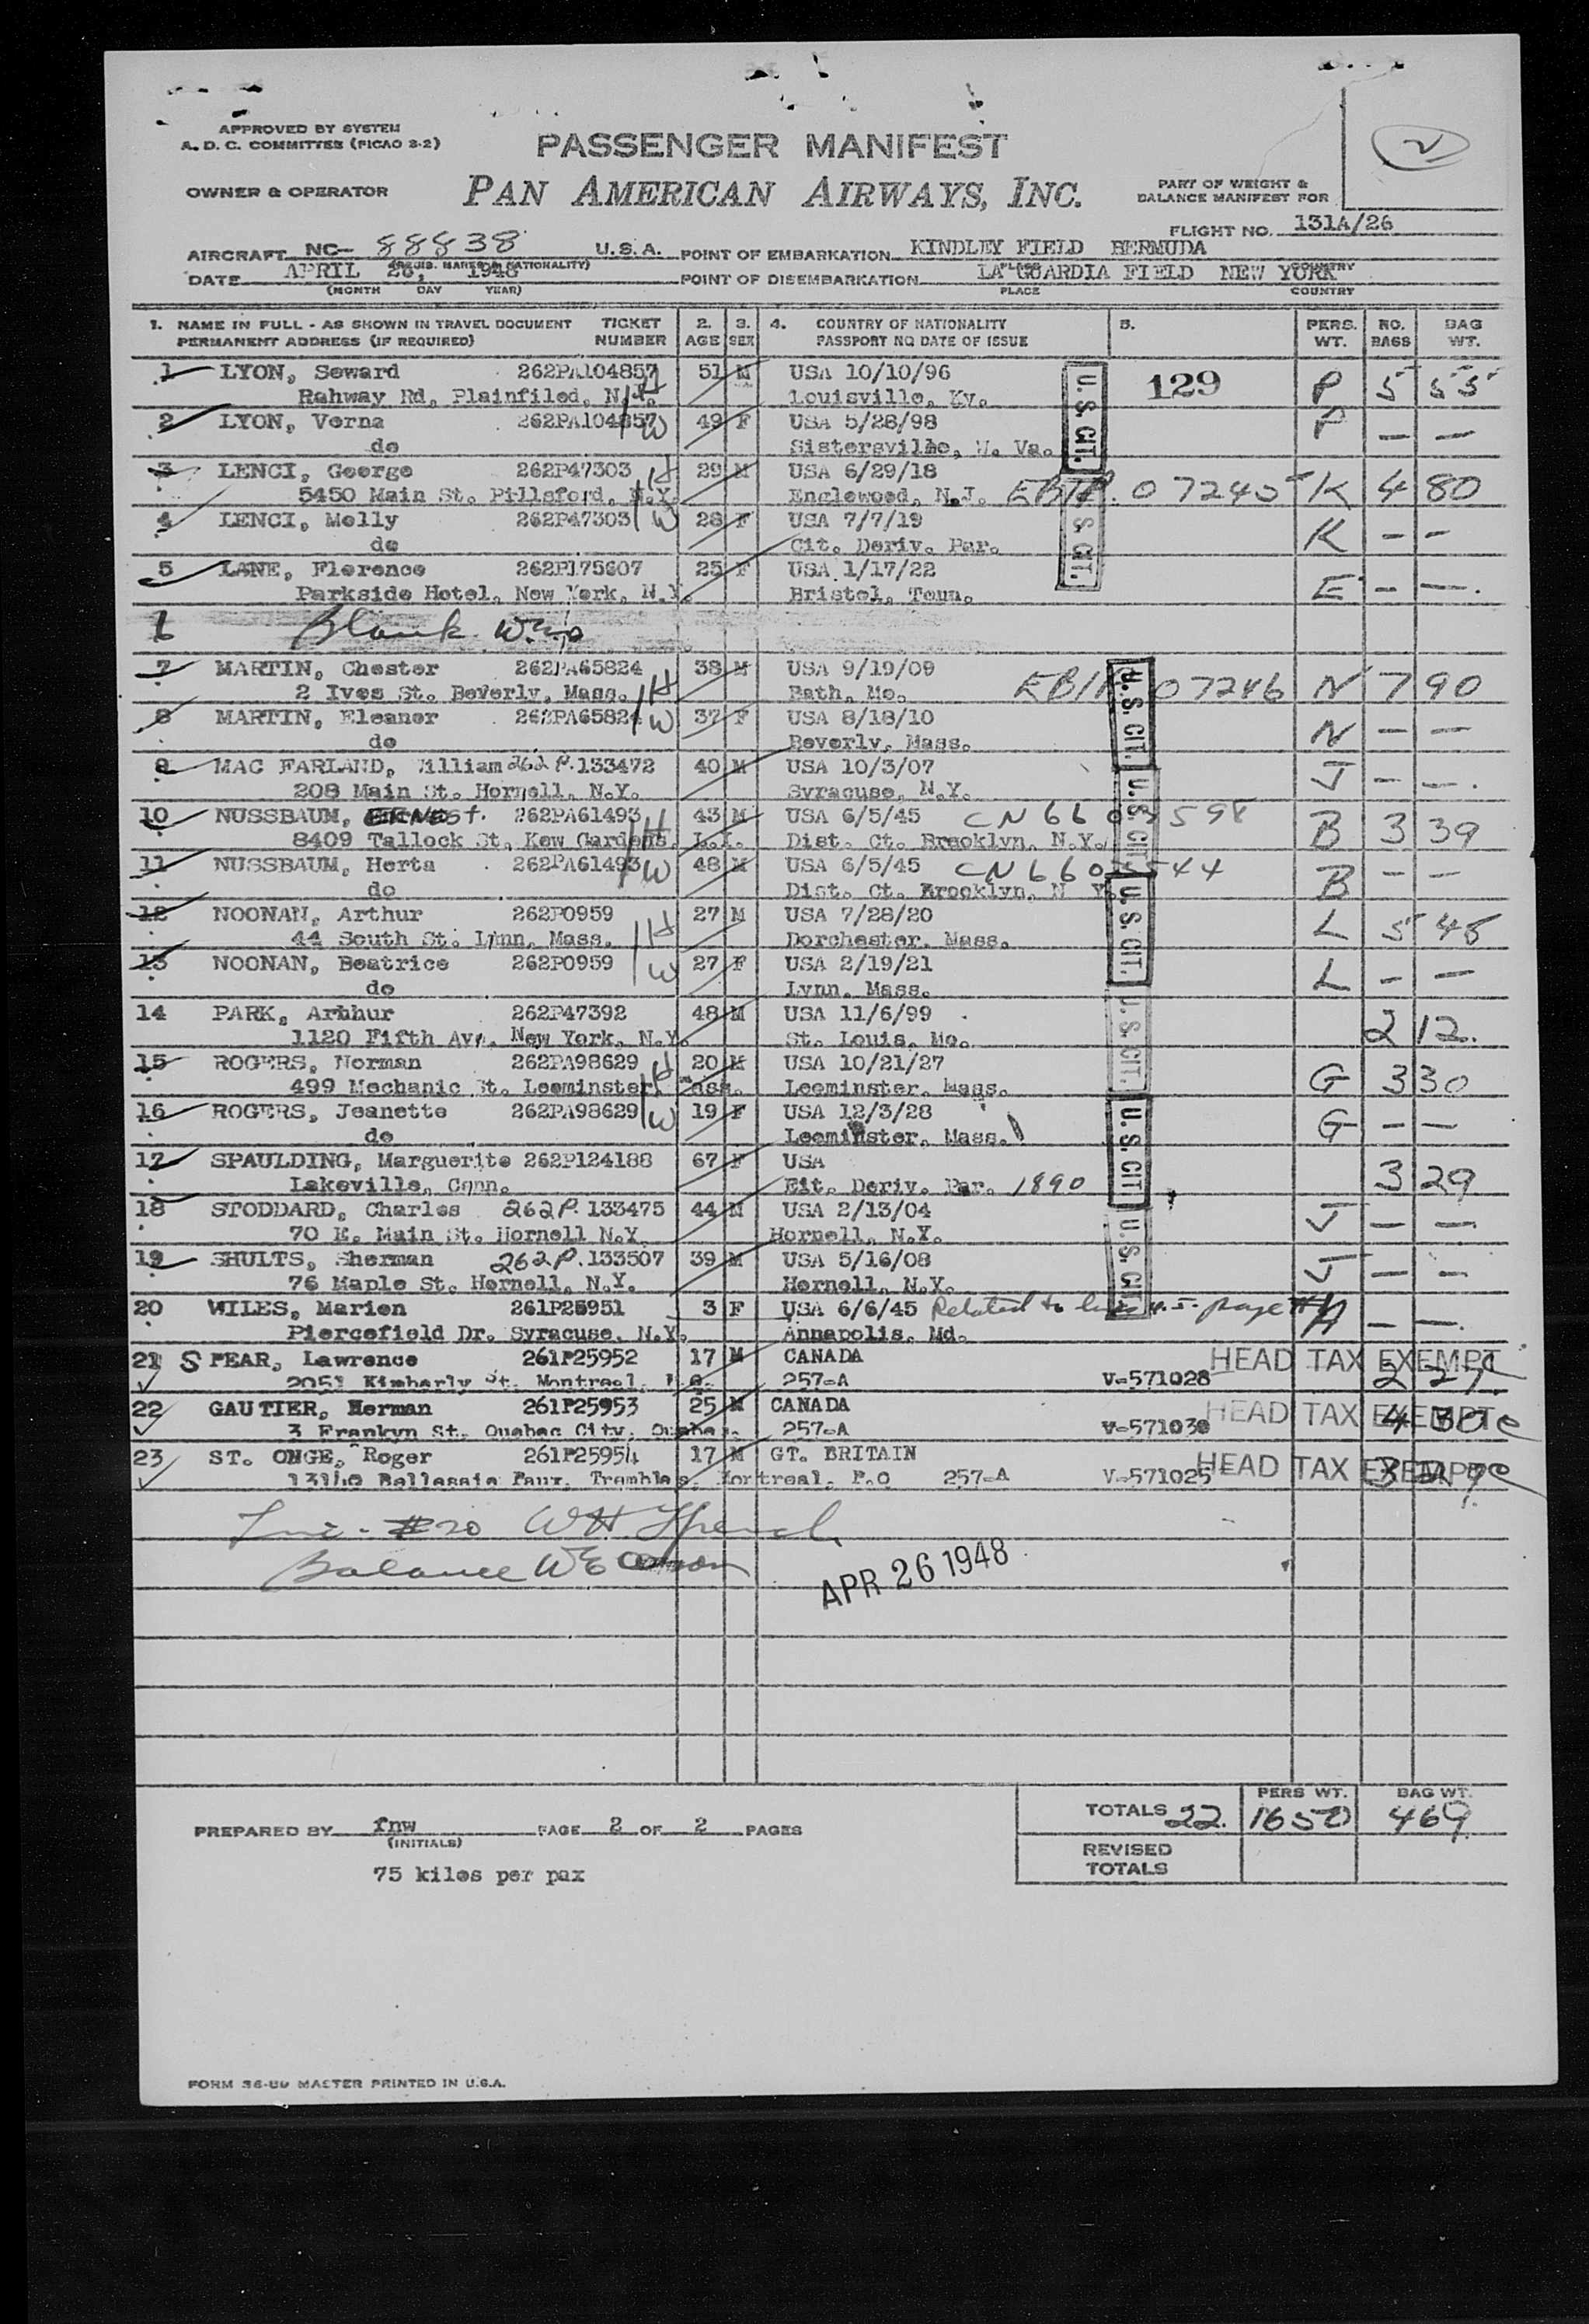 APPROVED BY SYSTEM
A. D. C. COMMITTEE (PICAO 2-2)
PASSENGER MANIFEST
2
OWNER & OPERATOR
PAN AMERICAN AIRWAYS, INC.
PART OF WEIGHT &
BALANCE MANIFEST FOR
FLIGHT NO. 131A/26
AIRCRAFT NC- 88838 U.S.A. POINT OF EMBARKATION KINDLEY FIELD BERMUDA
DATE APRIL 26, 1948 POINT OF DISEMBARKATION LA GUARDIA FIELD NEW YORK
(MONTH DAY YEAR) PLACE COUNTRY
1. NAME IN FULL - AS SHOWN IN TRAVEL DOCUMENT TICKET 2. 3. 4. COUNTRY OF NATIONALITY 5. PERS. NO. BAG
PERMANENT ADDRESS (IF REQUIRED) NUMBER AGE SEX PASSPORT NO DATE OF ISSUE WT. BAGS WT.
1 LYON, Seward 262PA104857 51 M USA 10/10/96 U.S. CIT. 129 P 5 55
Rahway Rd. Plainfiled, N.J. H Louisville, Ky.
2 LYON, Verna 262PA104857 W 49 F USA 5/28/98 P — —
do Sistersville, W. Va.
3 LENCI, George 262P47303 H 29 M USA 6/29/18
5450 Main St. Pillsford, N.Y. Englewood, N.J. 07245 K 4 80
4 LENCI, Molly 262P47303 W 28 F USA 7/7/19 U.S. CIT. K — —
do Cit. Deriv. Par.
5 LANE, Florence 262P175607 25 F USA 1/17/22
Parkside Hotel, New York, N.Y. Bristol, Tenn. E — —
6 Blank
7 MARTIN, Chester 262PA65824 38 M USA 9/19/09 U.S. CIT.
2 Ives St. BeVerly, Mass. H Bath, Me. 07246 N 7 90
8 MARTIN, Eleanor 262PA65824 W 37 F USA 8/18/10 N — —
do Beverly, Mass.
9 MAC FARLAND, William 262 P.133472 40 M USA 10/3/07 U.S. CIT. J — —
208 Main St. Hornell, N.Y. Syracuse, N.Y.
10 NUSSBAUM, ERNEST. 262PA61493 43 M USA 6/5/45
8409 Tallock St. Kew Gardens, L.I. H Dist. Ct. Brooklyn, N.Y. B 3 39
11 NUSSBAUM, Herta 262PA61493 W 48 M USA 6/5/45
do Dist. Ct. Brooklyn, N Y. B — —
12 NOONAN, Arthur 262P0959 27 M USA 7/28/20 U.S. CIT. L 5 45
44 South St. Lynn, Mass. H Dorchester, Mass.
13 NOONAN, Beatrice 262P0959 W 27 F USA 2/19/21 L — —
do Lynn, Mass.
14 PARK, Arhhur 262P47392 48 M USA 11/6/99 U.S. CIT.
1120 Fifth Ave. New York, N.Y. St. Louis, Mo. 2 12.
15 ROGERS, Norman 262PA98629 H 20 M USA 10/21/27
499 Mechanic St. Leominster, Mass. Leominster, Mass. G 3 30
16 ROGERS, Jeanette 262PA98629 W 19 F USA 12/3/28 U.S. CIT G — —
do Leominster, Mass.
17 SPAULDING, Marguerite 262P124188 67 F USA
Lakeville, Conn. Eit. Deriv. Par. 1890 3 29
18 STODDARD, Charles 262P.133475 44 M USA 2/13/04 U.S. CIT. J — —
70 E. Main St. Hornell N.Y. Hornell, N.Y.
19 SHULTS, Sherman 262P.133507 39 M USA 5/16/08
76 Maple St. Hornell, N.Y. Hornell, N.Y. J — —
20 WILES, Marion 261P25951 3 F USA 6/6/45 Related to page — —
Piercefield Dr. Syracuse, N.Y. Annapolis, Md.
21 SPEAR, Lawrence 261P25952 17 M CANADA HEAD TAX EXEMPT
2051 Kimberly St. Montreal, 257-A V-571028 2 27
22 GAUTIER, Herman 261P25953 25 M CANADA HEAD TAX EXEMPT
3 Frankyn St. Quebec City, 257-A V-571030 4
23 ST. ONGE, Roger 261P25954 17 M GT. BRITAIN HEAD TAX EXEMPT
Montreal, P.Q 257-A V-571025 3
#20
Balance
APR 26 1948
PERS WT. BAG WT.
TOTALS 22. 1650 469
PREPARED BY fnw PAGE 2 OF 2 PAGES
(INITIALS)
REVISED
TOTALS
75 kilos per pax
FORM MASTER PRINTED IN U.S.A.